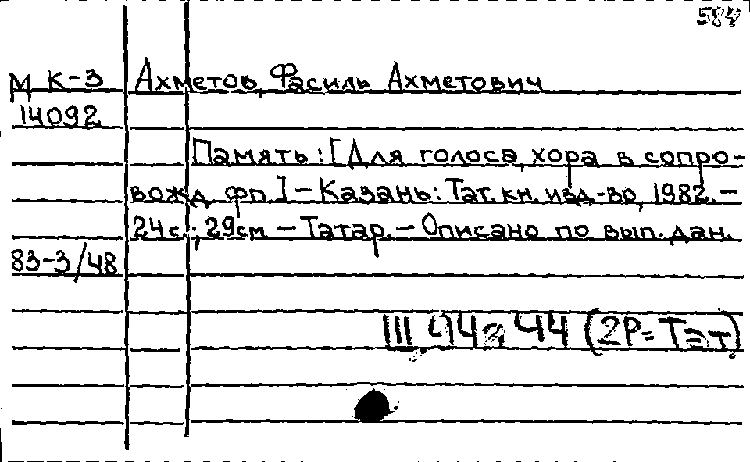 584
М К-3 Ахметов, Фасиль Ахметович
14092
Память: [Для голоса, хора в сопро-
вожд. фп.] – Казань: Тат. кн. изд-во, 1982. –
24с.; 29см – Татар. – Описано по вып. дан.
83-3/48
44 (2Р=Тат)